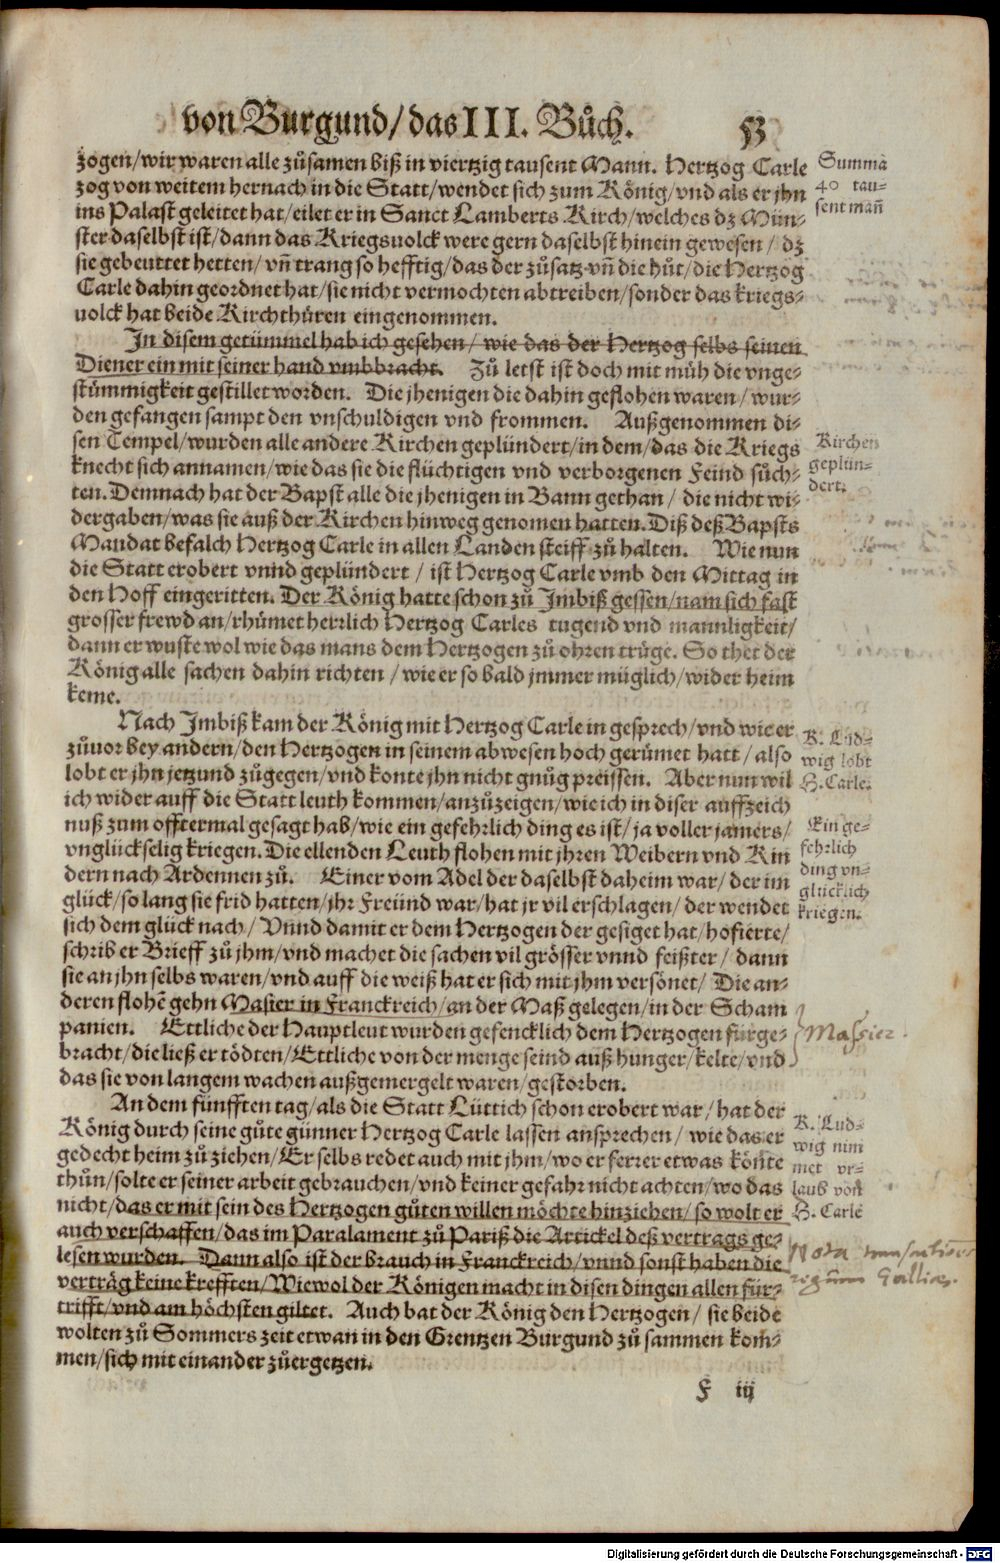 von Burgund/das III. Bůch.
zogen/wir waren alle zůsamen biß in viertzig tausent Mann. Hertzog Carle
zog von weitem hernach in die Statt/wendet sich zum König/vnd als er jhn
ins Palast geleitet hat/eilet er in Sanct Lamberts Kirch/welches dz Mün-
ster daselbst ist/dann das Kriegsuolck were gern daselbst hinein gewesen/ dz
sie gebeuttet hetten/vñ trang so hefftig/das der zůsatz vñ die hůt/die Hertzog
Carle dahin geordnet hat/sie nicht vermochten abtreiben/sonder das kriegs-
uolck hat beide Kirchthüren eingenommen.
Summa
40 tau-
sent mañ
In disem getümmel hab ich gesehen/ wie das der Hertzog selbs seinen
Diener ein mit seiner hand vmbbracht. Zů letst ist doch mit můh die vnge-
stümmigkeit gestillet worden. Die jhenigen die dahin geflohen waren/ wur-
den gefangen sampt den vnschuldigen vnd frommen. Außgenommen di-
sen Tempel/wurden alle andere Kirchen geplündert/in dem/das die Kriegs
knecht sich annamen/wie das sie die flüchtigen vnd verborgenen Feind sůch-
ten. Demnach hat der Bapst alle die jhenigen in Bann gethan/ die nicht wi-
dergaben/was sie auß der Kirchen hinweg genomen hatten. Diß deß Bapsts
Mandat befalch Hertzog Carle in allen Landen steiff zů halten. Wie nun
die Statt erobert vnnd geplündert/ ist Hertzog Carle vmb den Mittag in
den Hoff eingeritten. Der König hatte schon zů Imbiß gessen/nam sich fast
grosser frewd an/rhůmet herrlich Hertzog Carles tugend vnd mannligkeit/
dann er wuste wol wie das mans dem Hertzogen zů ohren trüge. So thet der
König alle sachen dahin richten/wie er so bald jmmer müglich/wider heim
keme.
Kirchen
geplün-
dert.
Nach Imbiß kam der König mit Hertzog Carle in gesprech/vnd wie er
zůuor bey andern/den Hertzogen in seinem abwesen hoch gerůmet hatt/also
lobt er jhn jetzund zůgegen/vnd konte jhn nicht gnůg preissen. Aber nun wil
ich wider auff die Statt leuth kommen/anzůzeigen/wie ich in diser auffzeich
nuß zum offtermal gesagt hab/wie ein gefehrlich ding es ist/ja voller jamers/
vnglückselig kriegen. Die ellenden Leuth flohen mit jhren Weibern vnd Kin
dern nach Ardennen zů. Einer vom Adel der daselbst daheim war/ der im
glück/so lang sie frid hatten/jhr Freünd war/hat jr vil erschlagen/der wendet
sich dem glück nach/ Vnnd damit er dem Hertzogen der gesiget hat/hofierte/
schrib er Brieff zů jhm/vnd machet die sachen vil grösser vnnd feißter/ dann
sie an jhn selbs waren/vnd auff die weiß hat er sich mit jhm versönet/ Die an-
deren flohẽ gehn Masier in Franckreich/an der Maß gelegen/in der Scham
panien. Ettliche der Hauptleut wurden gefencklich dem Hertzogen fürge-
bracht/die ließ er tödten/Ettliche von der menge seind auß hunger/kelte/vnd
das sie von langem wachen außgemergelt waren/gestorben.
K. Lud-
wig lobt
H. Carle.
Ein ge-
fehrlich
ding vn-
glücklich
kriegen.
Massier.
An dem fünfften tag/als die Statt Lüttich schon erobert war/hat der
König durch seine gůte günner Hertzog Carle lassen ansprechen/ wie das er
gedecht heim zů ziehen/Er selbs redet auch mit jhm/wo er ferrer etwas könte
thůn/solte er seiner arbeit gebrauchen/vnd keiner gefahr nicht achten/wo das
nicht/das er mit sein des Hertzogen gůten willen möchte hinziehen/ so wolt er
auch verschaffen/das im Paralament zů Pariß die Artickel deß vertrags ge-
lesen wurden. Dann also ist der brauch in Franckreich/vnnd sonst haben die
verträg keine krefften/Wiewol der Königen macht in disen dingen allen für-
trifft/vnd am höchsten giltet. Auch bat der König den Hertzogen/ sie beide
wolten zů Sommers zeit etwan in den Grentzen Burgund zů sammen kom-
men/sich mit einander zůergetzen.
K. Lud-
wig nim
met vr-
laub von
H. Carle
Nota
Galliae.
F iij
Digitalisierung gefördert durch die Deutsche Forschungsgemeinschaft - DFG